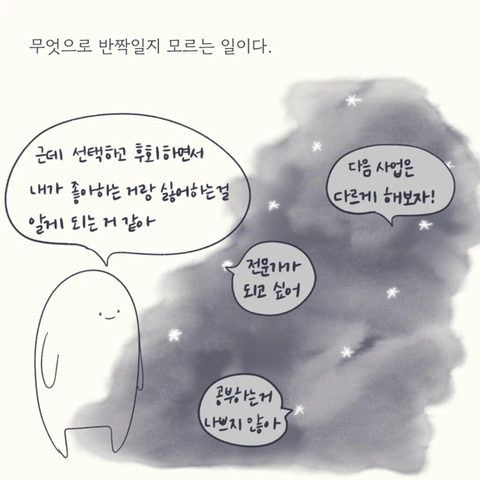 무엇으로 반짝일지 모르는 일이다.
근데 선택하고 후회하면서
내가 좋아하는 거랑 싫어하는걸
알게 되는 거 같아
다음 사업은
다르게 해보자!
전문가가
되고 싶어
공부하는거
나쁘지 않아